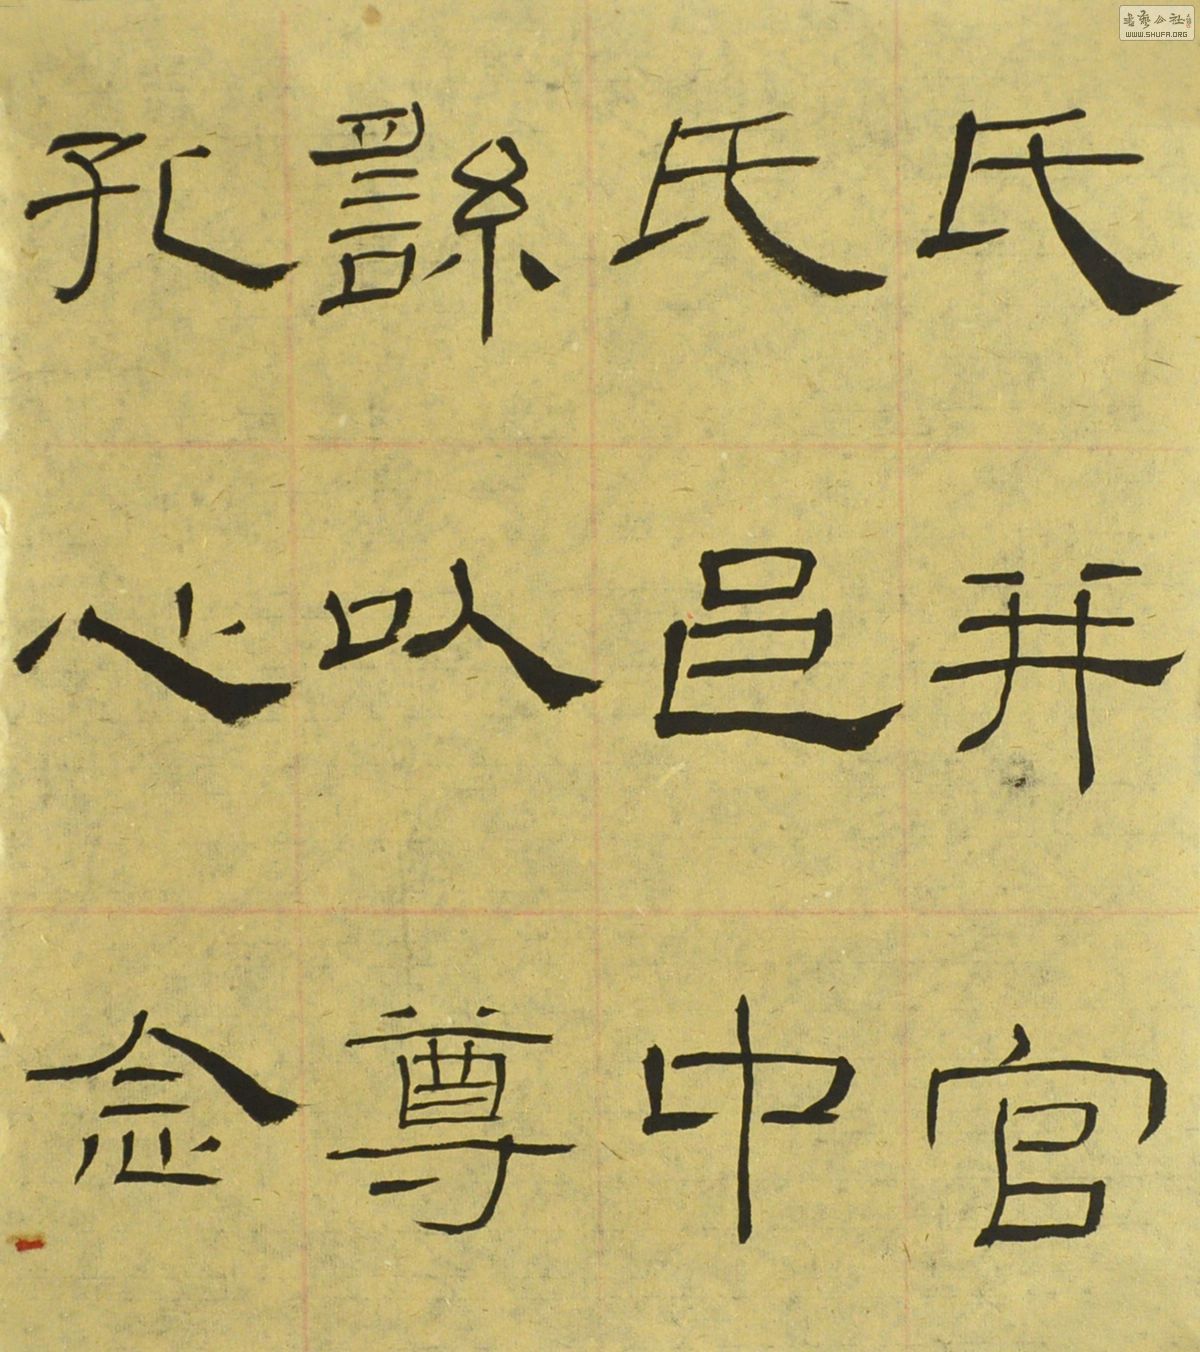 氏并官
氏邑中
繇以尊
孔心念
書藝公社
WWW.SHUFA.ORG